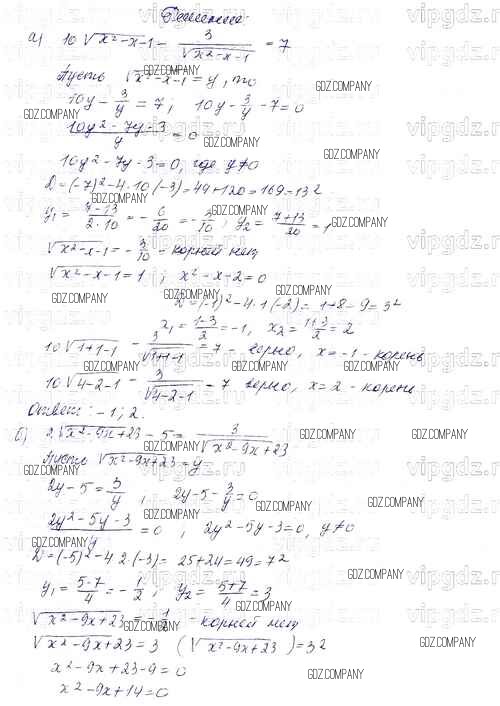 Решение:
а) 10√(x²-x-1) - 3/√(x²-x-1) = 7
Пусть √(x²-x-1) = y, то
10y - 3/y = 7; 10y - 3/y - 7 = 0
(10y² - 7y - 3)/y = 0
10y² - 7y - 3 = 0, где y≠0
D = (-7)² - 4·10·(-3) = 49 + 120 = 169 = 13²
y₁ = (7-13)/(2·10) = -6/20 = -3/10, y₂ = (7+13)/20 = 1
√(x²-x-1) = -3/10 - корней нет
√(x²-x-1) = 1; x²-x-2 = 0
D = (-1)² - 4·1·(-2) = 1+8 = 9 = 3²
x₁ = (1-3)/2 = -1, x₂ = (1+3)/2 = 2
10√(1+1-1) - 3/√(1+1-1) = 7 - верно, x = -1 - корень
10√(4-2-1) - 3/√(4-2-1) = 7 верно, x = 2 - корень
Ответ: -1; 2.
б) 2√(x²-9x+23) - 5 = 3/√(x²-9x+23)
Пусть √(x²-9x+23) = y
2y - 5 = 3/y, 2y - 5 - 3/y = 0
(2y² - 5y - 3)/y = 0, 2y² - 5y - 3 = 0, y≠0
D = (-5)² - 4·2·(-3) = 25 + 24 = 49 = 7²
y₁ = (5-7)/4 = -1/2, y₂ = (5+7)/4 = 3
√(x²-9x+23) = -1/2 - корней нет
√(x²-9x+23) = 3 (√(x²-9x+23))² = 3²
x² - 9x + 23 - 9 = 0
x² - 9x + 14 = 0